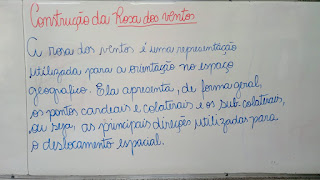 Construção da Rosa dos ventos
A rosa dos ventos é uma representação
utilizada para a orientação no espaço
geográfico. Ela apresenta, de forma geral,
os pontos cardeais e colaterais e os sub-colaterais,
ou seja, as principais direções utilizadas para
o deslocamento espacial.